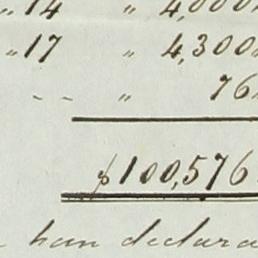 „ 14 „ 4,000
„ 17 „ 4,300
-- „ 76
$100,576
han declara